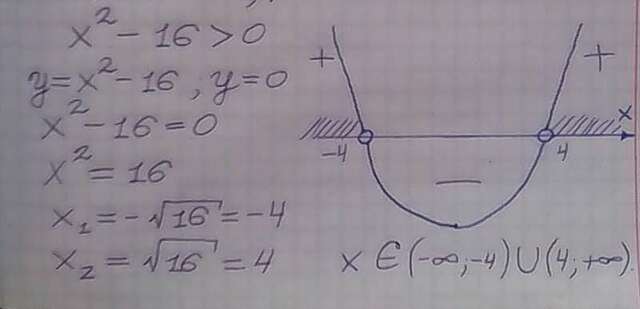 x² - 16 > 0
y = x² - 16 , y = 0
x² - 16 = 0
x² = 16
x₁ = -√16 = -4
x₂ = √16 = 4
+ +
x
-4 4
—
x ∈ (-∞; -4) ∪ (4; +∞).